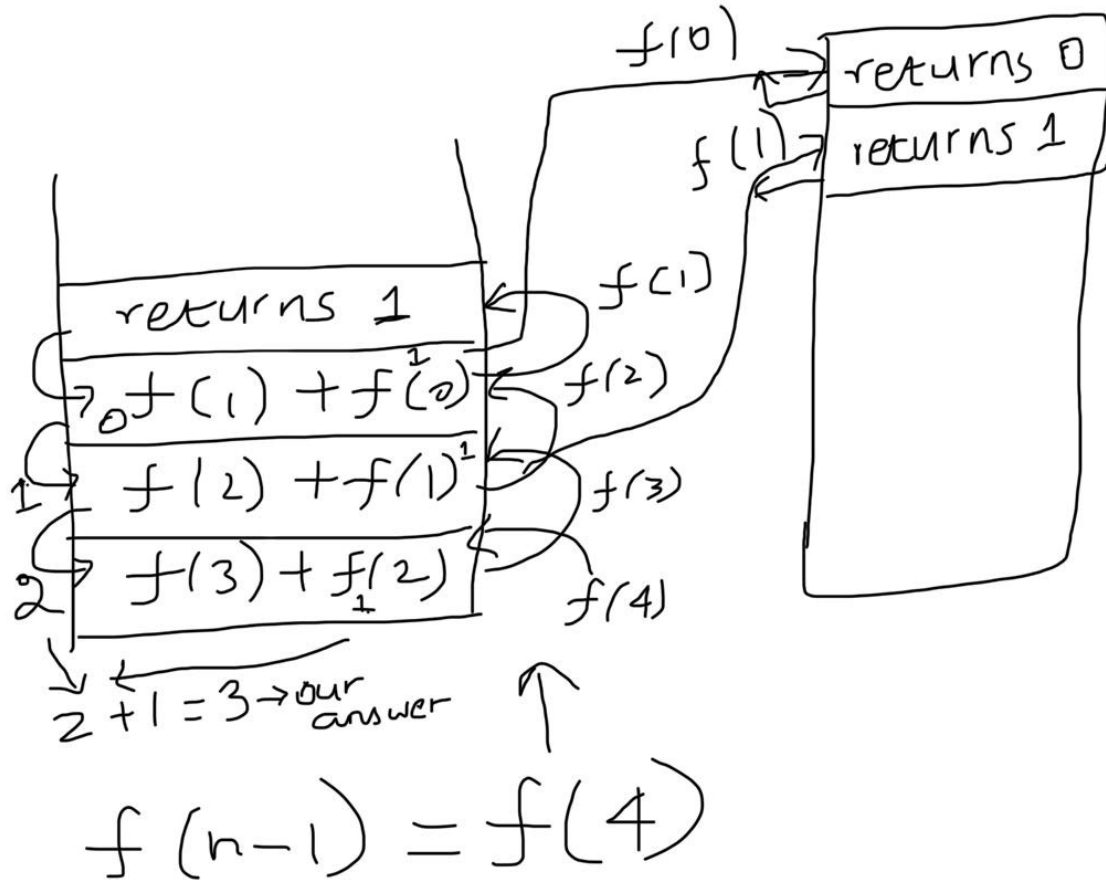 f(0)
returns 0
f(1)
returns 1
f(1)
returns 1
f(2)
1
0 f(1) + f(0)
f(3)
1
1 f(2) + f(1)
f(4)
2 f(3) + f(2)
1
2 + 1 = 3 → our
answer
f(n-1) = f(4)